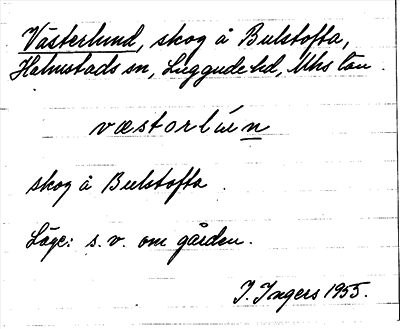 Västerlund, skog å Bulstofta,
Halmstads sn, Luggude hd, Mhs län.
væstorlún
skog å Bulstofta.
Läge: s.v. om gården.
I. Ingers 1955.